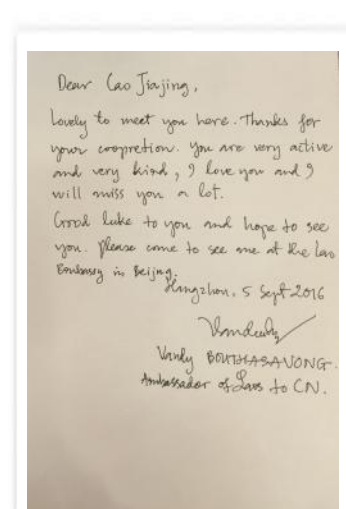 Dear Cao Jiajing,
Lovely to meet you here. Thanks for
your coopretion. you are very active
and very kind, I love you and I
will miss you a lot.
Good luke to you and hope to see
you. please come to see me at the Lao
Embassy in Beijing.
Hangzhou, 5 Sept 2016
Vandy BOUTHASAVONG
Ambassador of Laos to CN.